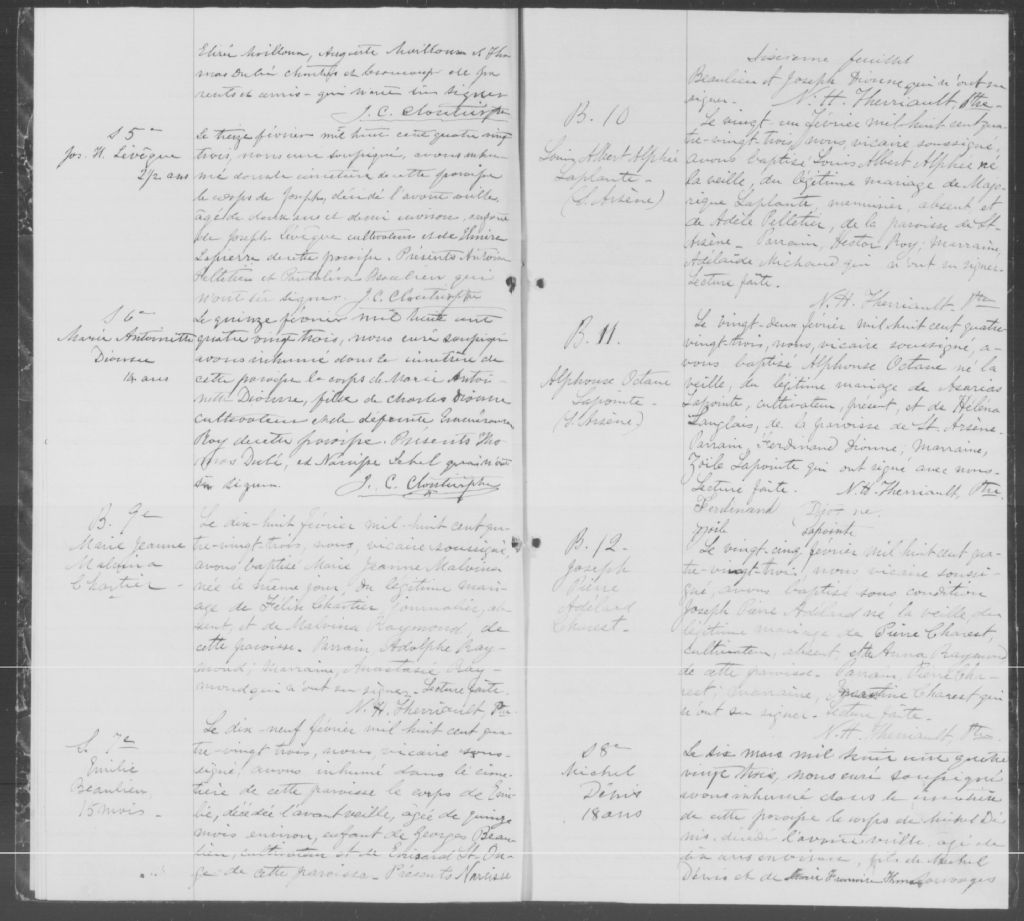 Moilloux, Auguste Moilloux et Tho
mas Dubé chantres et beaucoup de pa
rents et amis - qui n'ont su signer
J. C. Cloutier ptre
S 5e
Jos. H. Lévêque
2 1/2 ans
Le treize février mil huit cent quatre vingt
trois, nous curé soussigné, avons inhu
mé dans le cimetière de cette paroisse
le corps de Joseph, décédé l'avant veille,
agé de deux ans et demi environ, enfant
de Joseph Lévêque cultivateur et de
Lapierre de cette paroisse. Présents Antoine
Pelletier et Beaulieu qui
n'ont su signer. J. C. Cloutier ptre
S 6e
Marie Antoinette
Dionne
14 ans
Le quinze février mil huit cent
quatre vingt trois, nous curé soussigné
avons inhumé dans le cimetière de
cette paroisse le corps de Marie Antoi
nette Dionne, fille de Charles Dionne
cultivateur et de défunte
Roy de cette paroisse. Présents Tho
mas Dubé, et Narcisse Lebel qui n'ont
su signer. J. C. Cloutier ptre
B. 9e
Marie Jeanne
Malvina
Chartier
Le dix-huit février mil-huit cent qua
tre-vingt-trois, nous, vicaire soussigné,
avons baptisé Marie Jeanne Malvina
née le même jour, du légitime mari-
age de Félix Chartier, journalier, ab-
sent, et de Malvina Raymond, de
cette paroisse. Parrain, Adolphe Ray-
mond; Marraine, Anastasie Ray-
mond qui n'ont su signer. Lecture faite.
N. H. Therriault, Ptre
S. 7e
Emilie
Beaulieu
15 mois -
Le dix-neuf février mil huit cent qua
tre-vingt trois, nous, vicaire sous-
signé, avons inhumé dans le cime-
tière de cette paroisse le corps de Emi-
lie, décédée l'avant veille, agée de quinze
mois environ, enfant de Georges Beau-
lieu, cultivateur et de St. On-
ge de cette paroisse - Présents Narcisse
feuillet
Beaulieu et Joseph Dionne qui n'ont su
signer. - N. H. Therriault, Ptre
B. 10
Louis Albert Alphée
Laplante -
(St. Arsène)
Le vingt-un février mil huit cent qua-
tre-vingt trois, nous, vicaire soussigné,
avons baptisé Louis Albert Alphée né
la veille, du légitime mariage de Majo-
rique Laplante, menuisier, absent et
de Adèle Pelletier, de la paroisse de St-
Arsène - Parrain, Hector Roy; Marraine,
Adélaïde Michaud qui n'ont su signer.
Lecture faite.
N. H. Therriault. Ptre
B. 11.
Alphonse Octave
Lapointe -
(St. Arsène)
Le vingt-deux février mil huit cent quatre
vingt-trois, nous, vicaire soussigné, a-
vons baptisé Alphonse Octave né la
veille, du légitime mariage de Azarias
Lapointe, cultivateur, présent, et de Héléna
Langlais, de la paroisse de St. Arsène -
Parrain, Ferdinand Dionne, Marraine,
Zoïle Lapointe qui ont signé avec nous.
Lecture faite. N. H. Therriault, Ptre
Ferdinand Djonne
lapointe
B. 12 -
Joseph
Pierre
Adélard
Charest -
Le vingt-cinq février mil huit cent qua
tre-vingt-trois, nous vicaire soussi-
gné, avons baptisé sous condition
Joseph Pierre Adélard né la veille, du
légitime mariage de Pierre Charest,
cultivateur, absent, et de Anna Raymond
de cette paroisse. Parrain, Pierre Cha-
rest; Marraine, Charest qui
n'ont su signer - Lecture faite -
N. H. Therriault, Ptre
S 8e
Michel
Dénis
18 ans
Le six mars mil huit cent quatre
vingt trois, nous curé soussigné
avons inhumé dans le cimetière
de cette paroisse le corps de Michel Dé
nis, décédé l'avant veille, agé de
dix ans environ, fils de Michel
Dénis et de sauvages